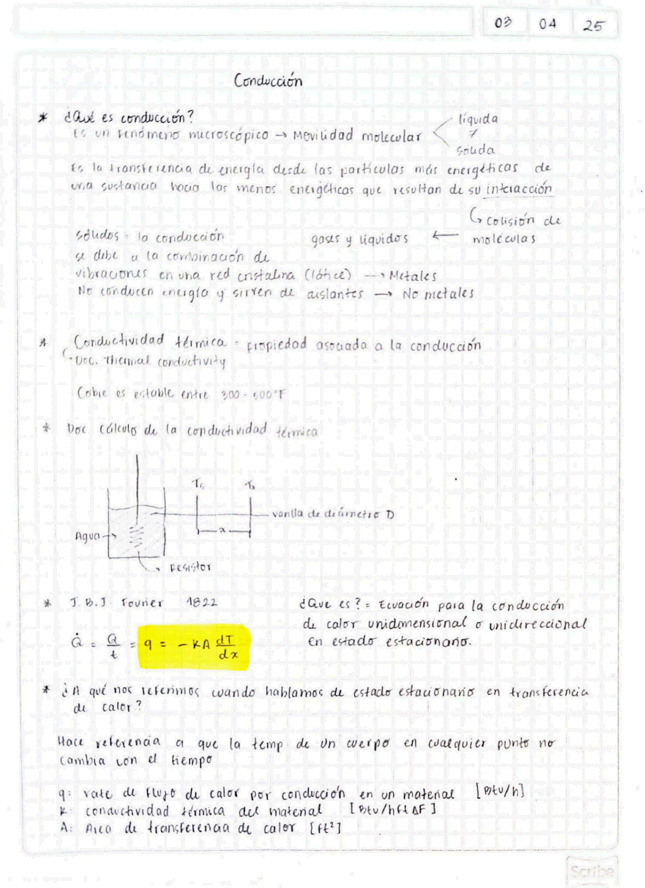 03 04 25
Conducción
* ¿Qué es conducción?
Es un fenómeno microscópico → Movilidad molecular
líquida
y
sólida
Es la transferencia de energía desde las partículas más energéticas de
una sustancia hacia las menos energéticas que resultan de su interacción
↳ colisión de
moléculas
gases y líquidos ←
sólidos = la conducción
se debe a la combinación de
vibraciones en una red cristalina (látice) → Metales
No conducen energía y sirven de aislantes → No metales
* Conductividad térmica = propiedad asociada a la conducción
↳ Doc. Thermal conductivity
Cobre es estable entre 300 - 500°F
* Doc cálculo de la conductividad térmica
Agua →
Resistor
varilla de diámetro D
* J.B.J. Fourier 1822
Q̇ = Q/t = q = -kA dT/dx
¿Que es? = Ecuación para la conducción
de calor unidimensional o unidireccional
en estado estacionario.
* ¿A qué nos referimos cuando hablamos de estado estacionario en transferencia
de calor?
Hace referencia a que la temp de un cuerpo en cualquier punto no
cambia con el tiempo
q: rate de flujo de calor por conducción en un material [Btu/h]
k: conductividad térmica del material [Btu/hft ΔF]
A: Area de transferencia de calor [ft²]
Scribe